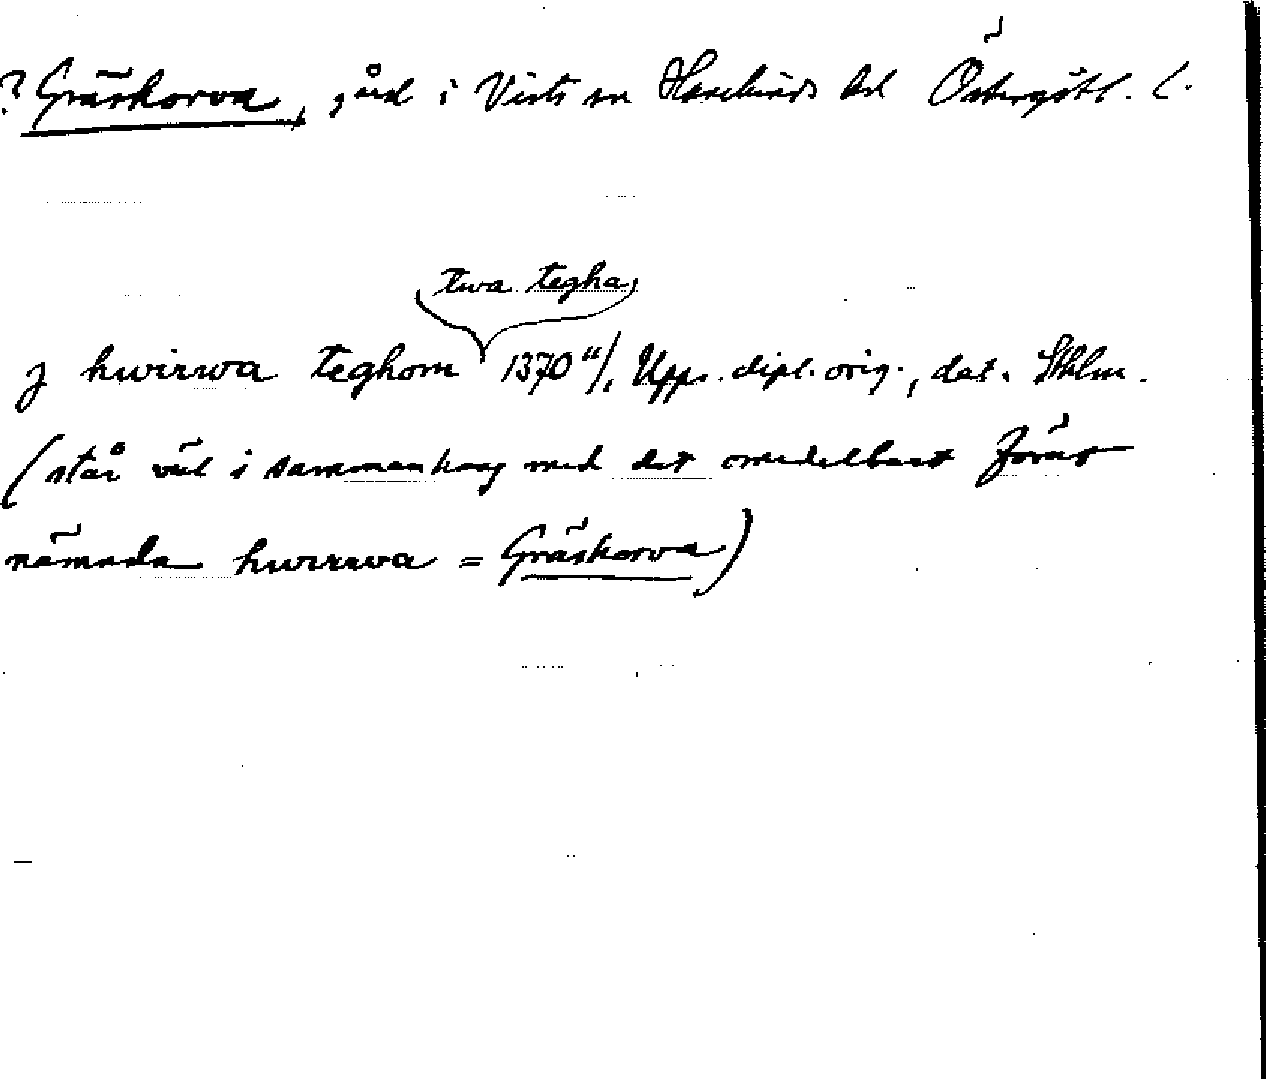 ? Gräskorva, gård i Vists sn Hanekinds hd Östergötl. l.
twa tegha
j hwirwa teghom 1370 4/1 Upps. dipl. orig., dat. Sthlm.
(står väl i sammanhang med det omedelbart förut
nämnda hwirwa = Gräskorva)